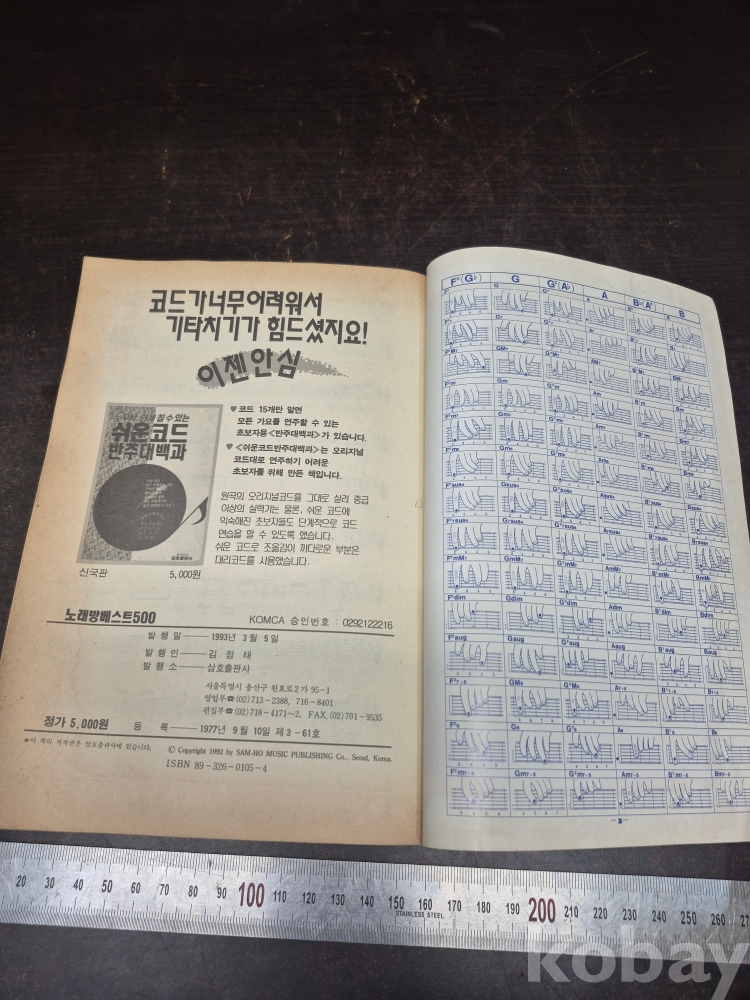 코드가너무어려워서
기타치기가 힘드셨지요!
이젠안심
쉬운코드
반주대백과
삼호출판사
신국판 5,000원
♥ 코드 15개만 알면
모든 가요를 연주할 수 있는
초보자용 <반주대백과>가 있습니다.
♥ <쉬운코드반주대백과>는 오리지널
코드대로 연주하기 어려운
초보자를 위해 만든 책입니다.
원곡의 오리지널코드를 그대로 살려 중급
이상의 실력가는 물론, 쉬운 코드에
익숙해진 초보자들도 단계적으로 코드
연습을 할 수 있도록 했습니다.
쉬운 코드로 조옮김이 까다로운 부분은
대리코드를 사용했습니다.
노래방베스트500 KOMCA 승인번호 : 0292122216
발 행 일 — 1993년 3월 5일
발 행 인 — 김 정 태
발 행 소 — 삼호출판사
서울특별시 용산구 원효로2가 95-1
영업부☎(02)713-2388, 716-8401
편집부☎(02)718-4171~2, FAX.(02)701-9535
정가 5,000원 등 록 — 1977년 9월 10일 제3-61호
*이 책의 저작권은 삼호출판사에 있습니다.
© Copyright 1992 by SAM-HO MUSIC PUBLISHING Co., Seoul, Korea.
ISBN 89-326-0105-4
F♯(G♭) G G♯(A♭) A B♭(A♯) B
G7
GM7 AM7
Gm Am Bm
Gm7
Gm6
Gsus4 Asus4 Bsus4
G7sus4
GmM7 AmM7 BmM7
F♯dim Gdim G♯dim Adim B♭dim Bdim
F♯aug Gaug G♯aug Aaug B♭aug Baug
G6 A6 B6
F♯m7-5 Gm7-5 G♯m7-5 Am7-5 B♭m7-5 Bm7-5
20 30 40 50 60 70 80 90 100 110 120 130 140 150 160 170 180 190 200 210 220 230 240 250 260
STAINLESS STEEL
kobay